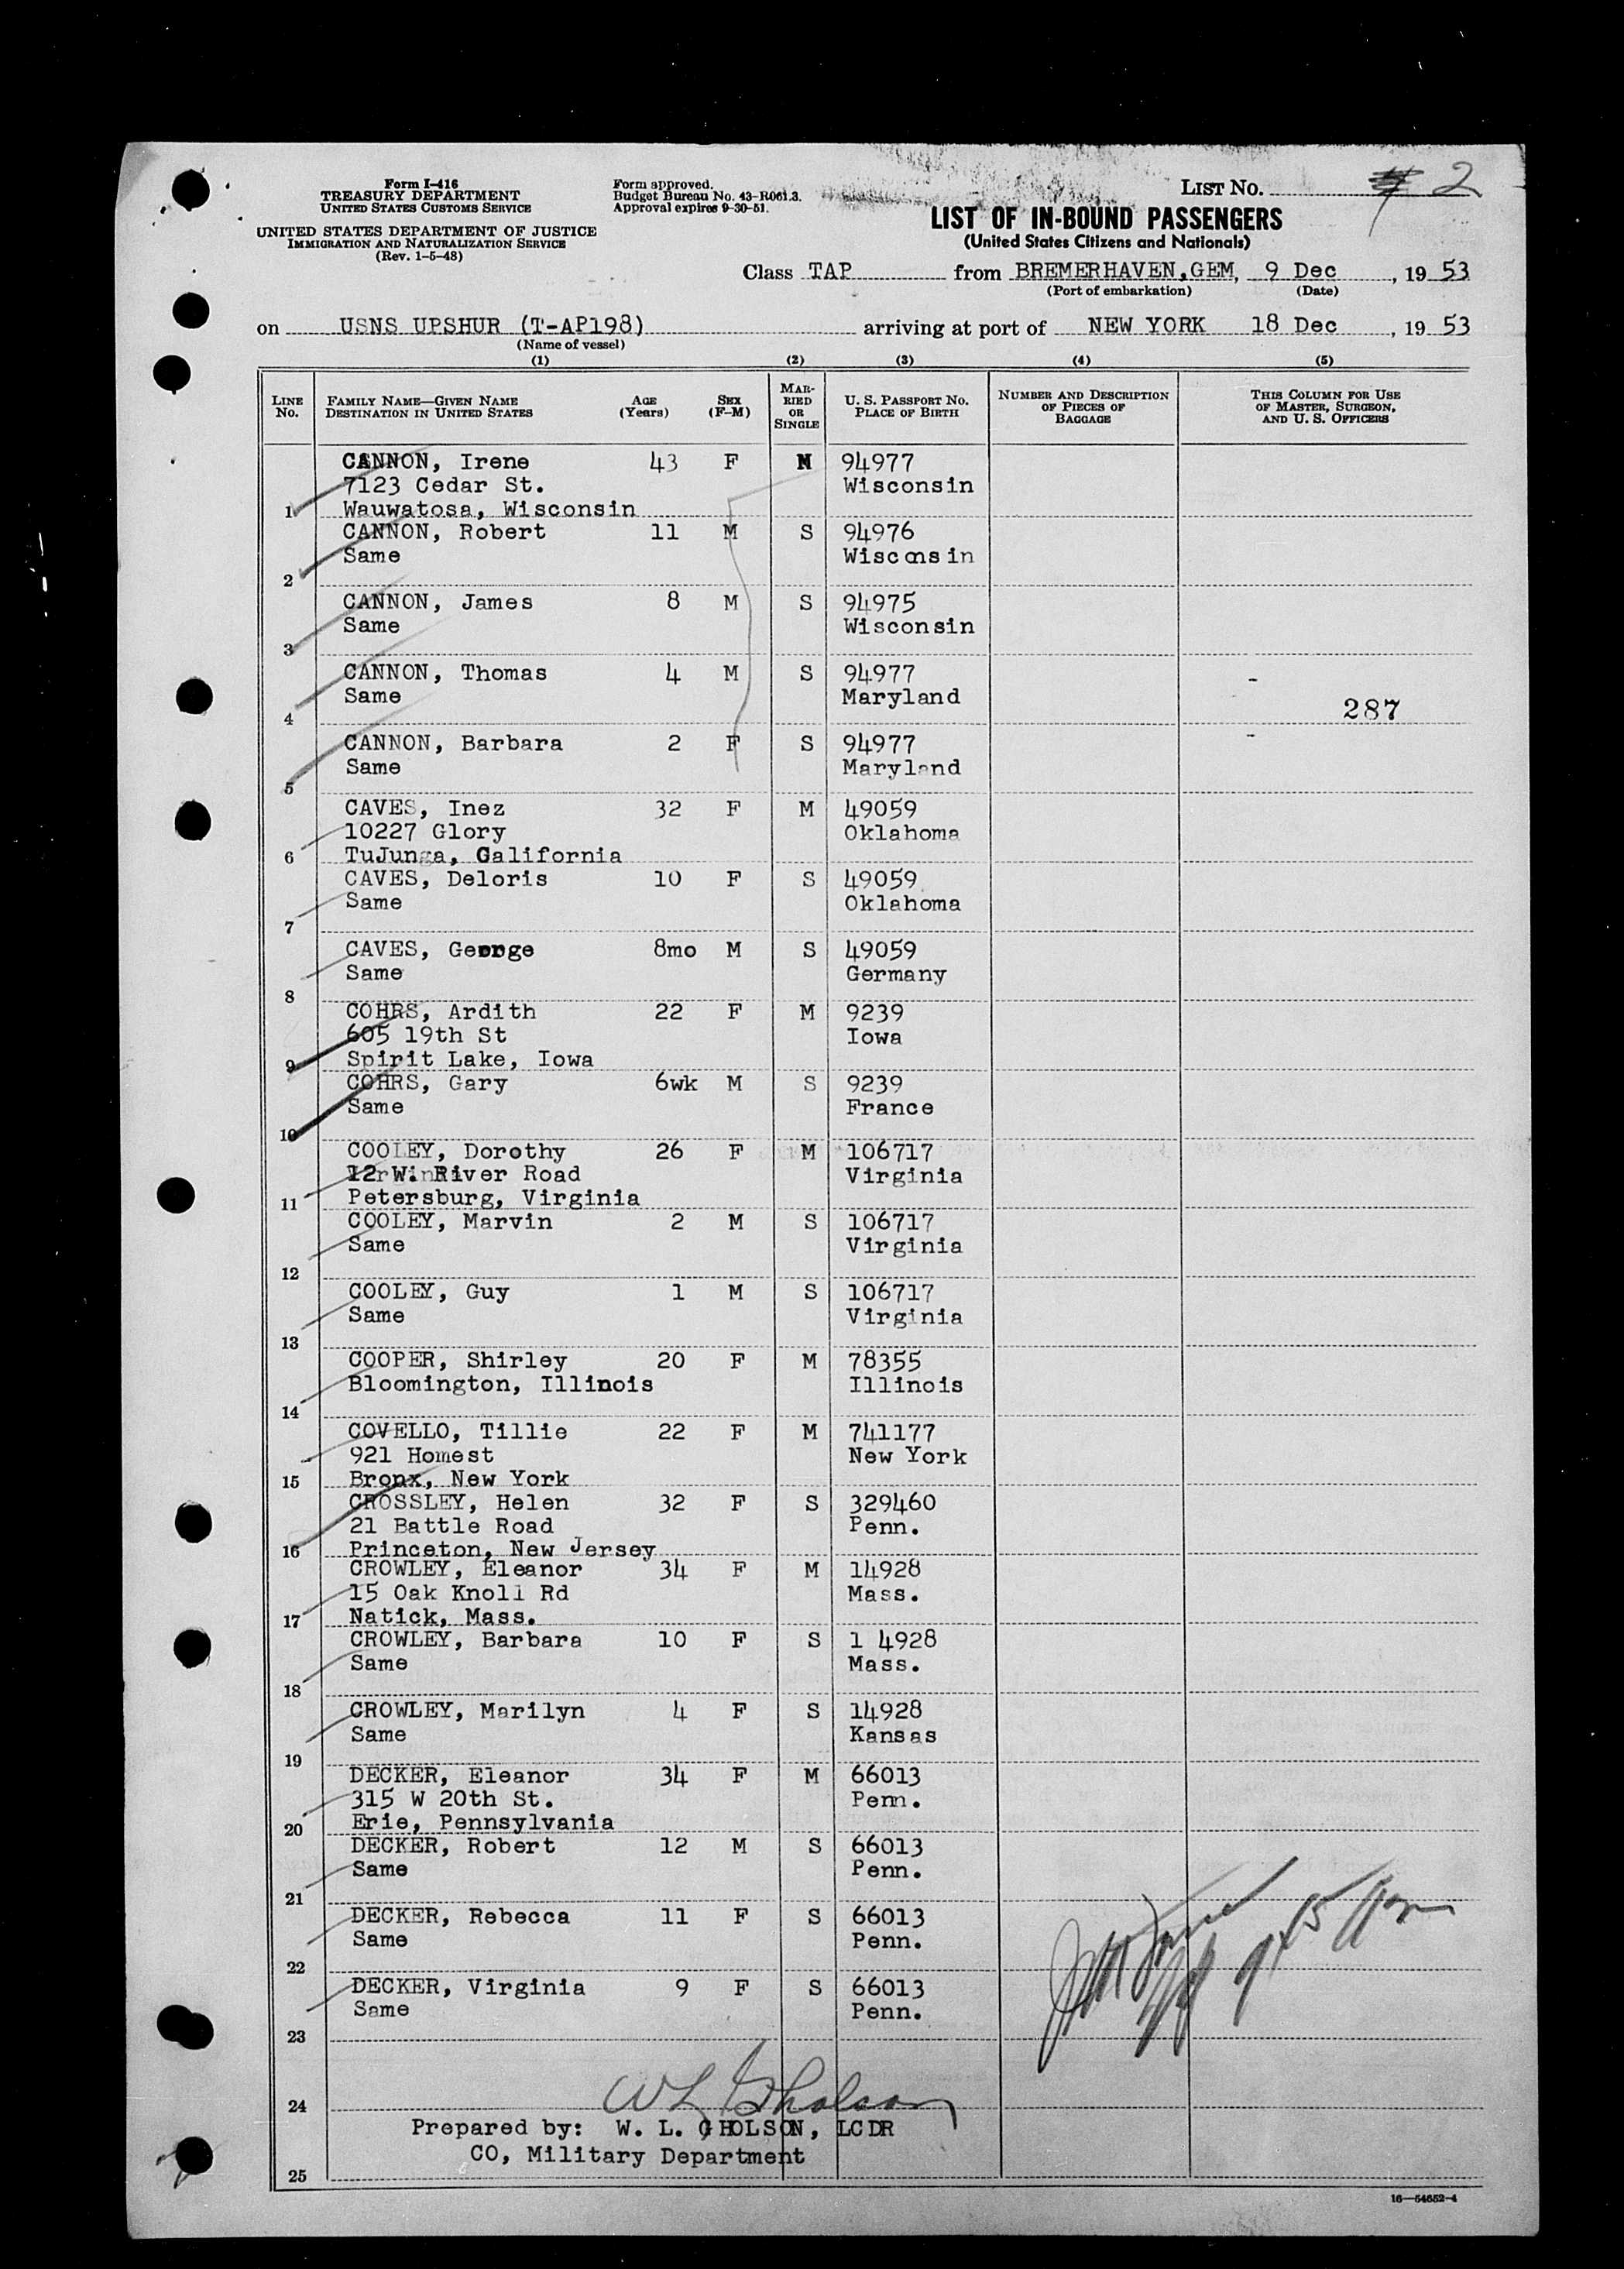 Form I-416
TREASURY DEPARTMENT
UNITED STATES CUSTOMS SERVICE
UNITED STATES DEPARTMENT OF JUSTICE
IMMIGRATION AND NATURALIZATION SERVICE
(Rev. 1-5-48)
Form approved.
Budget Bureau No. 43-R061.3.
Approval expires 9-30-51.
LIST NO. 2
LIST OF IN-BOUND PASSENGERS
(United States Citizens and Nationals)
Class TAP from BREMERHAVEN,GEM, 9 Dec, 19 53
(Port of embarkation) (Date)
on USNS UPSHUR (T-AP198) arriving at port of NEW YORK 18 Dec, 19 53
(Name of vessel)
(1) (2) (3) (4) (5)
LINE NO. FAMILY NAME—GIVEN NAME DESTINATION IN UNITED STATES AGE (Years) SEX (F-M) MARRIED OR SINGLE U. S. PASSPORT NO. PLACE OF BIRTH NUMBER AND DESCRIPTION OF PIECES OF BAGGAGE THIS COLUMN FOR USE OF MASTER, SURGEON, AND U. S. OFFICERS
CANNON, Irene 43 F M 94977
7123 Cedar St. Wisconsin
1 Wauwatosa, Wisconsin
CANNON, Robert 11 M S 94976
Same Wisconsin
2
CANNON, James 8 M S 94975
Same Wisconsin
3
CANNON, Thomas 4 M S 94977
Same Maryland
4 287
CANNON, Barbara 2 F S 94977
Same Maryland
5
CAVES, Inez 32 F M 49059
10227 Glory Oklahoma
6 TuJunga, Galifornia
CAVES, Deloris 10 F S 49059
Same Oklahoma
7
CAVES, George 8mo M S 49059
Same Germany
8
COHRS, Ardith 22 F M 9239
605 19th St Iowa
9 Spirit Lake, Iowa
COHRS, Gary 6wk M S 9239
Same France
10
COOLEY, Dorothy 26 F M 106717
12 W. River Road Virginia
11 Petersburg, Virginia
COOLEY, Marvin 2 M S 106717
Same Virginia
12
COOLEY, Guy 1 M S 106717
Same Virginia
13
COOPER, Shirley 20 F M 78355
Bloomington, Illinois Illinois
14
COVELLO, Tillie 22 F M 741177
921 Homest New York
15 Bronx, New York
CROSSLEY, Helen 32 F S 329460
21 Battle Road Penn.
16 Princeton, New Jersey
CROWLEY, Eleanor 34 F M 14928
15 Oak Knoll Rd Mass.
17 Natick, Mass.
CROWLEY, Barbara 10 F S 1 4928
Same Mass.
18
CROWLEY, Marilyn 4 F S 14928
Same Kansas
19
DECKER, Eleanor 34 F M 66013
315 W 20th St. Penn.
20 Erie, Pennsylvania
DECKER, Robert 12 M S 66013
Same Penn.
21
DECKER, Rebecca 11 F S 66013
Same Penn.
22
DECKER, Virginia 9 F S 66013
Same Penn.
23
W L Gholson
24
Prepared by: W. L. GHOLSON, LCDR
CO, Military Department
25
16—54652-4